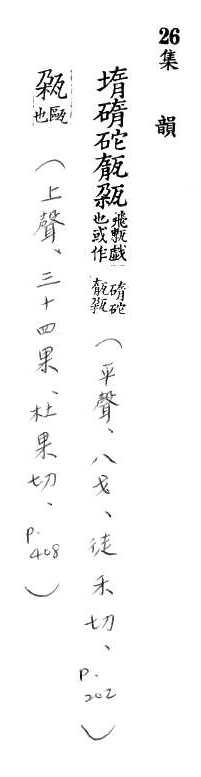 26集 韻
堶 砣 飛甎戲也或作 砣 (平聲、八戈、徒禾切、p.202)
甌也 (上聲、三十四果、杜果切、p.408)